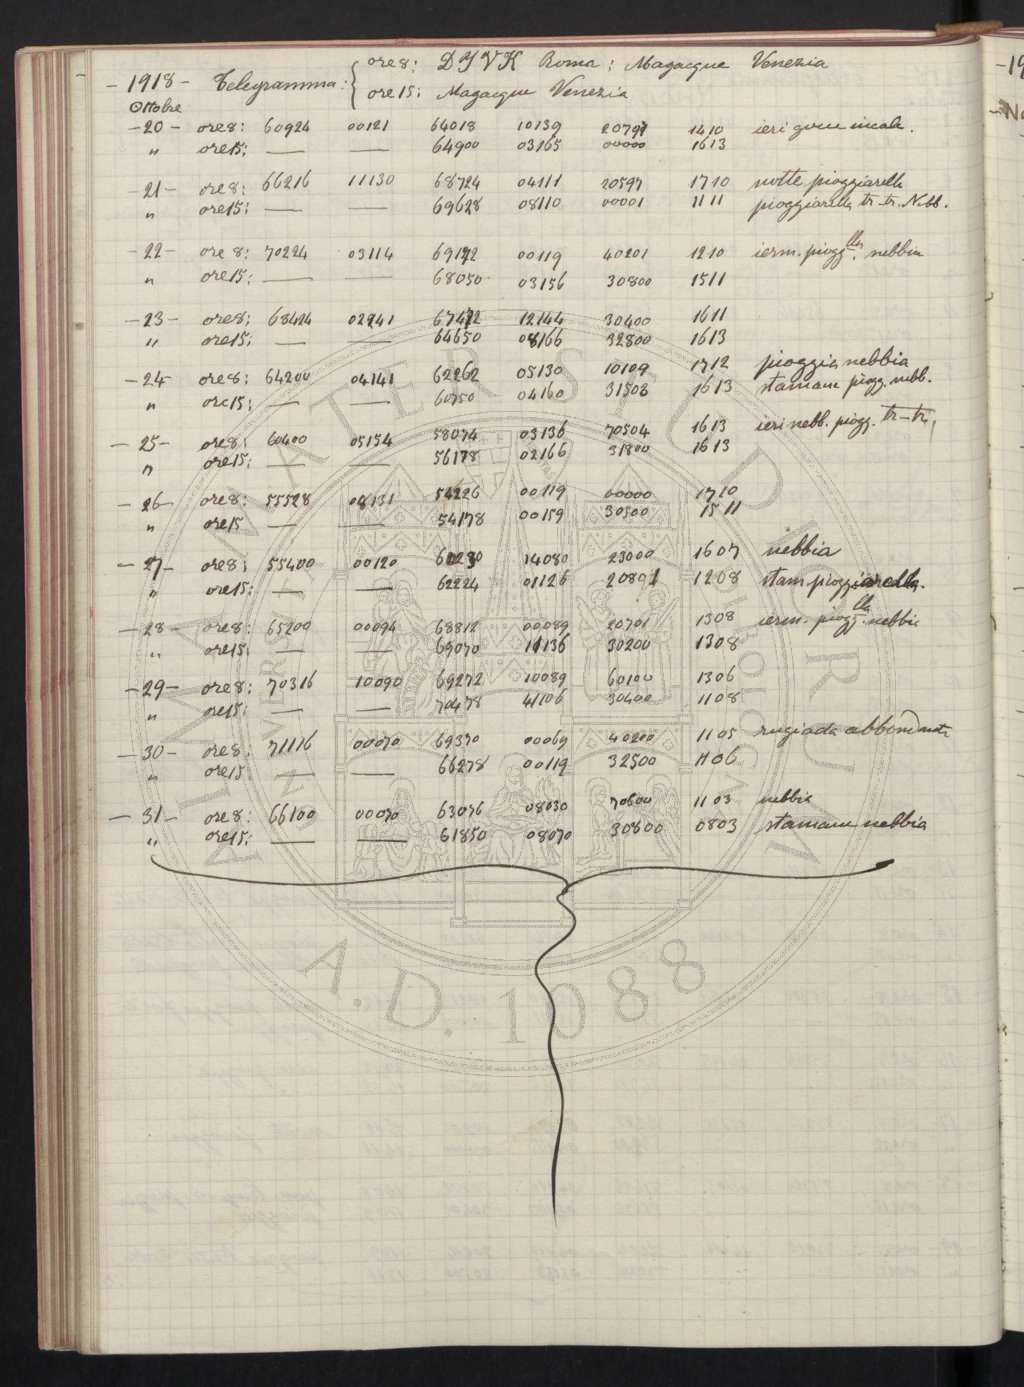 ore 8: DTVK Roma; Magacque Venezia
- 1918 - Telegramma:
ore 15: Magacque Venezia
Ottobre
- 20 - ore 8: 60924 00121 64018 10139 20797 1410 ieri
" ore 15: — — 64900 03165 00000 1613
- 21 - ore 8: 66216 11130 68724 04111 20597 1710 notte pioggiarella
" ore 15: — — 69628 08110 00001 1111 pioggiarella tr-tr. Nebb.
- 22 - ore 8: 70224 03114 69172 00119 40201 1210 iersm. piogglla. nebbia
" ore 15: — — 68050 03156 30800 1511
- 23 - ore 8: 68424 02241 67472 12144 30400 1611
" ore 15: — — 64650 08166 32800 1613
- 24 - ore 8: 64200 04141 62262 05130 10109 1712 pioggia nebbia
" ore 15: — — 60750 04160 31508 1613 stamane piogg. nebb.
- 25 - ore 8: 60400 05154 58074 03136 70504 1613 ieri nebb. piogg. tr-tr,
" ore 15: — — 56178 02166 31800 1613
- 26 - ore 8: 55528 08131 54226 00119 00000 1710
" ore 15 — — 54178 00159 30500 1511
- 27 - ore 8: 55400 00120 14080 23000 1607 nebbia
" ore 15: — — 62224 01126 20891 1208 stam. pioggiarella.
- 28 - ore 8: 65200 00094 68812 00089 20701 1308 iersm. piogglla. nebbia
" ore 15: — — 69070 11136 30200 1308
- 29 - ore 8: 70316 10090 69272 10089 60100 1306
" ore 15: — — 70478 41106 30400 1108
- 30 - ore 8: 71116 00070 69370 00069 40200 1105 rugiada abbondante
" ore 15: — — 66278 00119 32500 1106
- 31 - ore 8: 66100 00070 63076 08030 70600 1103 nebbia
" ore 15: — — 61850 08070 30800 0803 stamane nebbia
ALMA MATER STUDIORUM
A.D. 1088